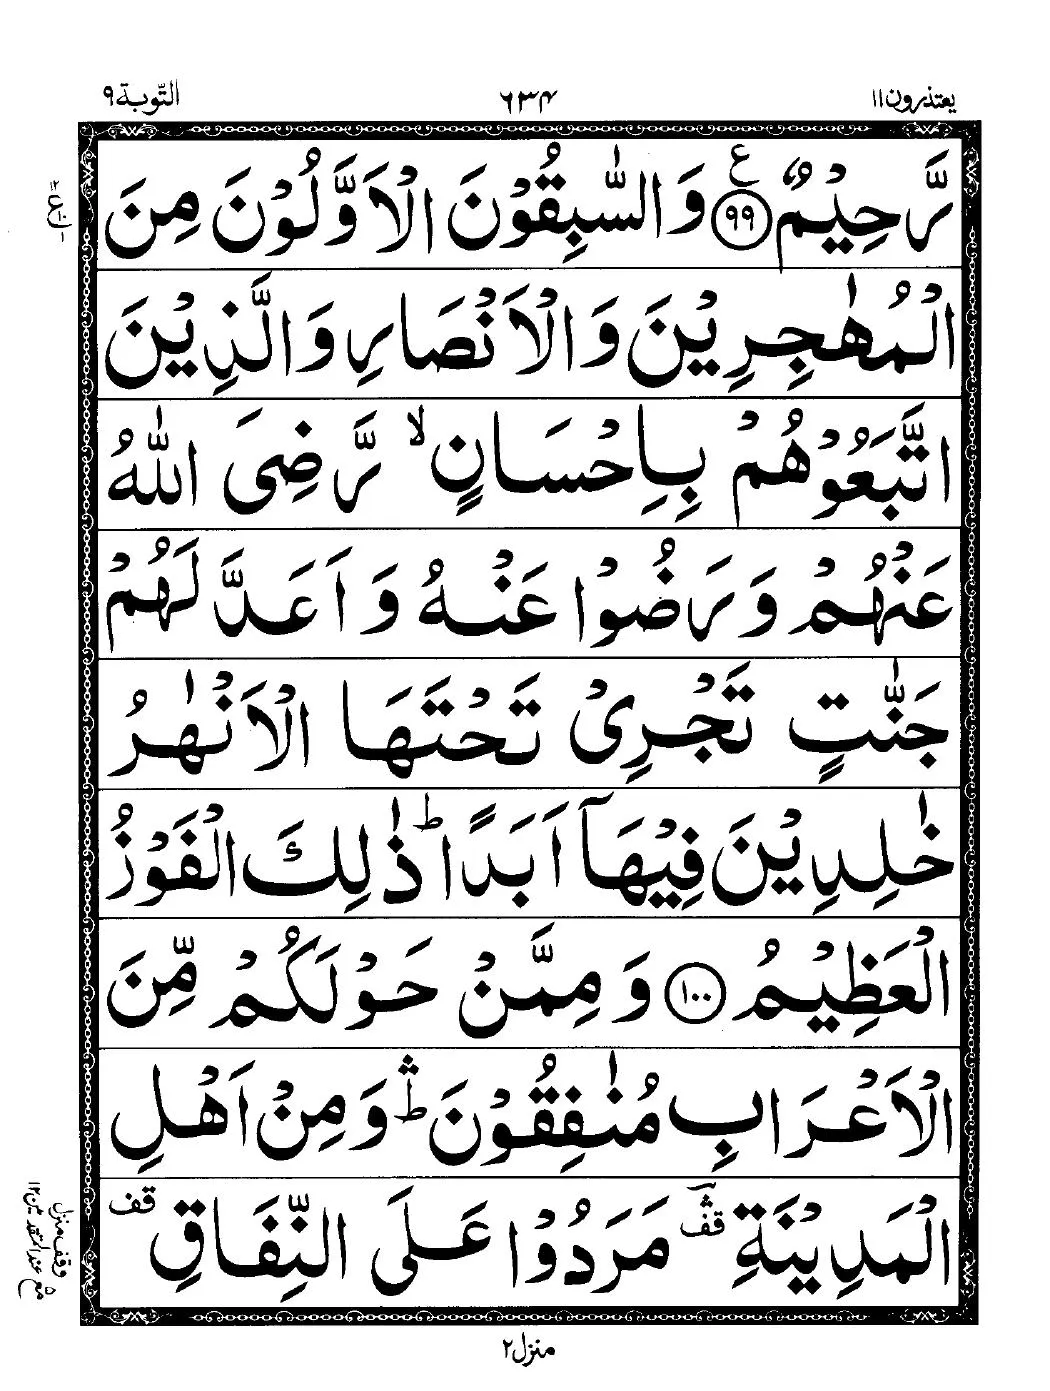 یعتذرون۱۱ ۶۳۴ التّوبة۹
رَّحِیْمٌ ﴿۹۹﴾ ع وَالسّٰبِقُوْنَ الْاَوَّلُوْنَ مِنَ
الْمُهٰجِرِیْنَ وَالْاَنْصَارِ وَالَّذِیْنَ
اتَّبَعُوْهُمْ بِاِحْسَانٍ ۙ رَّضِیَ اللّٰهُ
عَنْهُمْ وَرَضُوْا عَنْهُ وَاَعَدَّ لَهُمْ
جَنّٰتٍ تَجْرِیْ تَحْتَهَا الْاَنْهٰرُ
خٰلِدِیْنَ فِیْهَاۤ اَبَدًا ؕ ذٰلِكَ الْفَوْزُ
الْعَظِیْمُ ﴿۱۰۰﴾ وَمِمَّنْ حَوْلَكُمْ مِّنَ
الْاَعْرَابِ مُنٰفِقُوْنَ ۛؕ وَمِنْ اَهْلِ
الْمَدِیْنَةِ ۛ قف مَرَدُوْا عَلَی النِّفَاقِ قف
وقف منزل
منزل۲